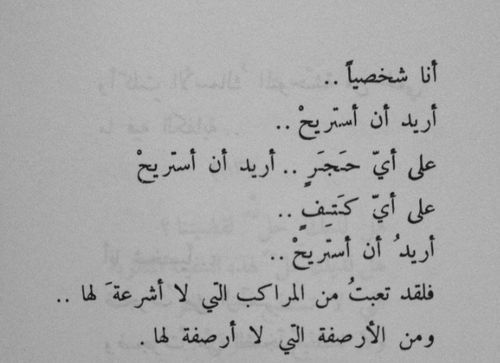 أنا شخصياً ..
أريد أن أستريحْ ..
على أيّ حَجَرٍ .. أريد أن أستريحْ
على أيّ كَتِفٍ ..
أريدُ أن أستريحْ ..
فلقد تعبتُ من المراكب التّي لا أشرعةَ لها ..
ومن الأرصفة التّي لا أرصفة لها .